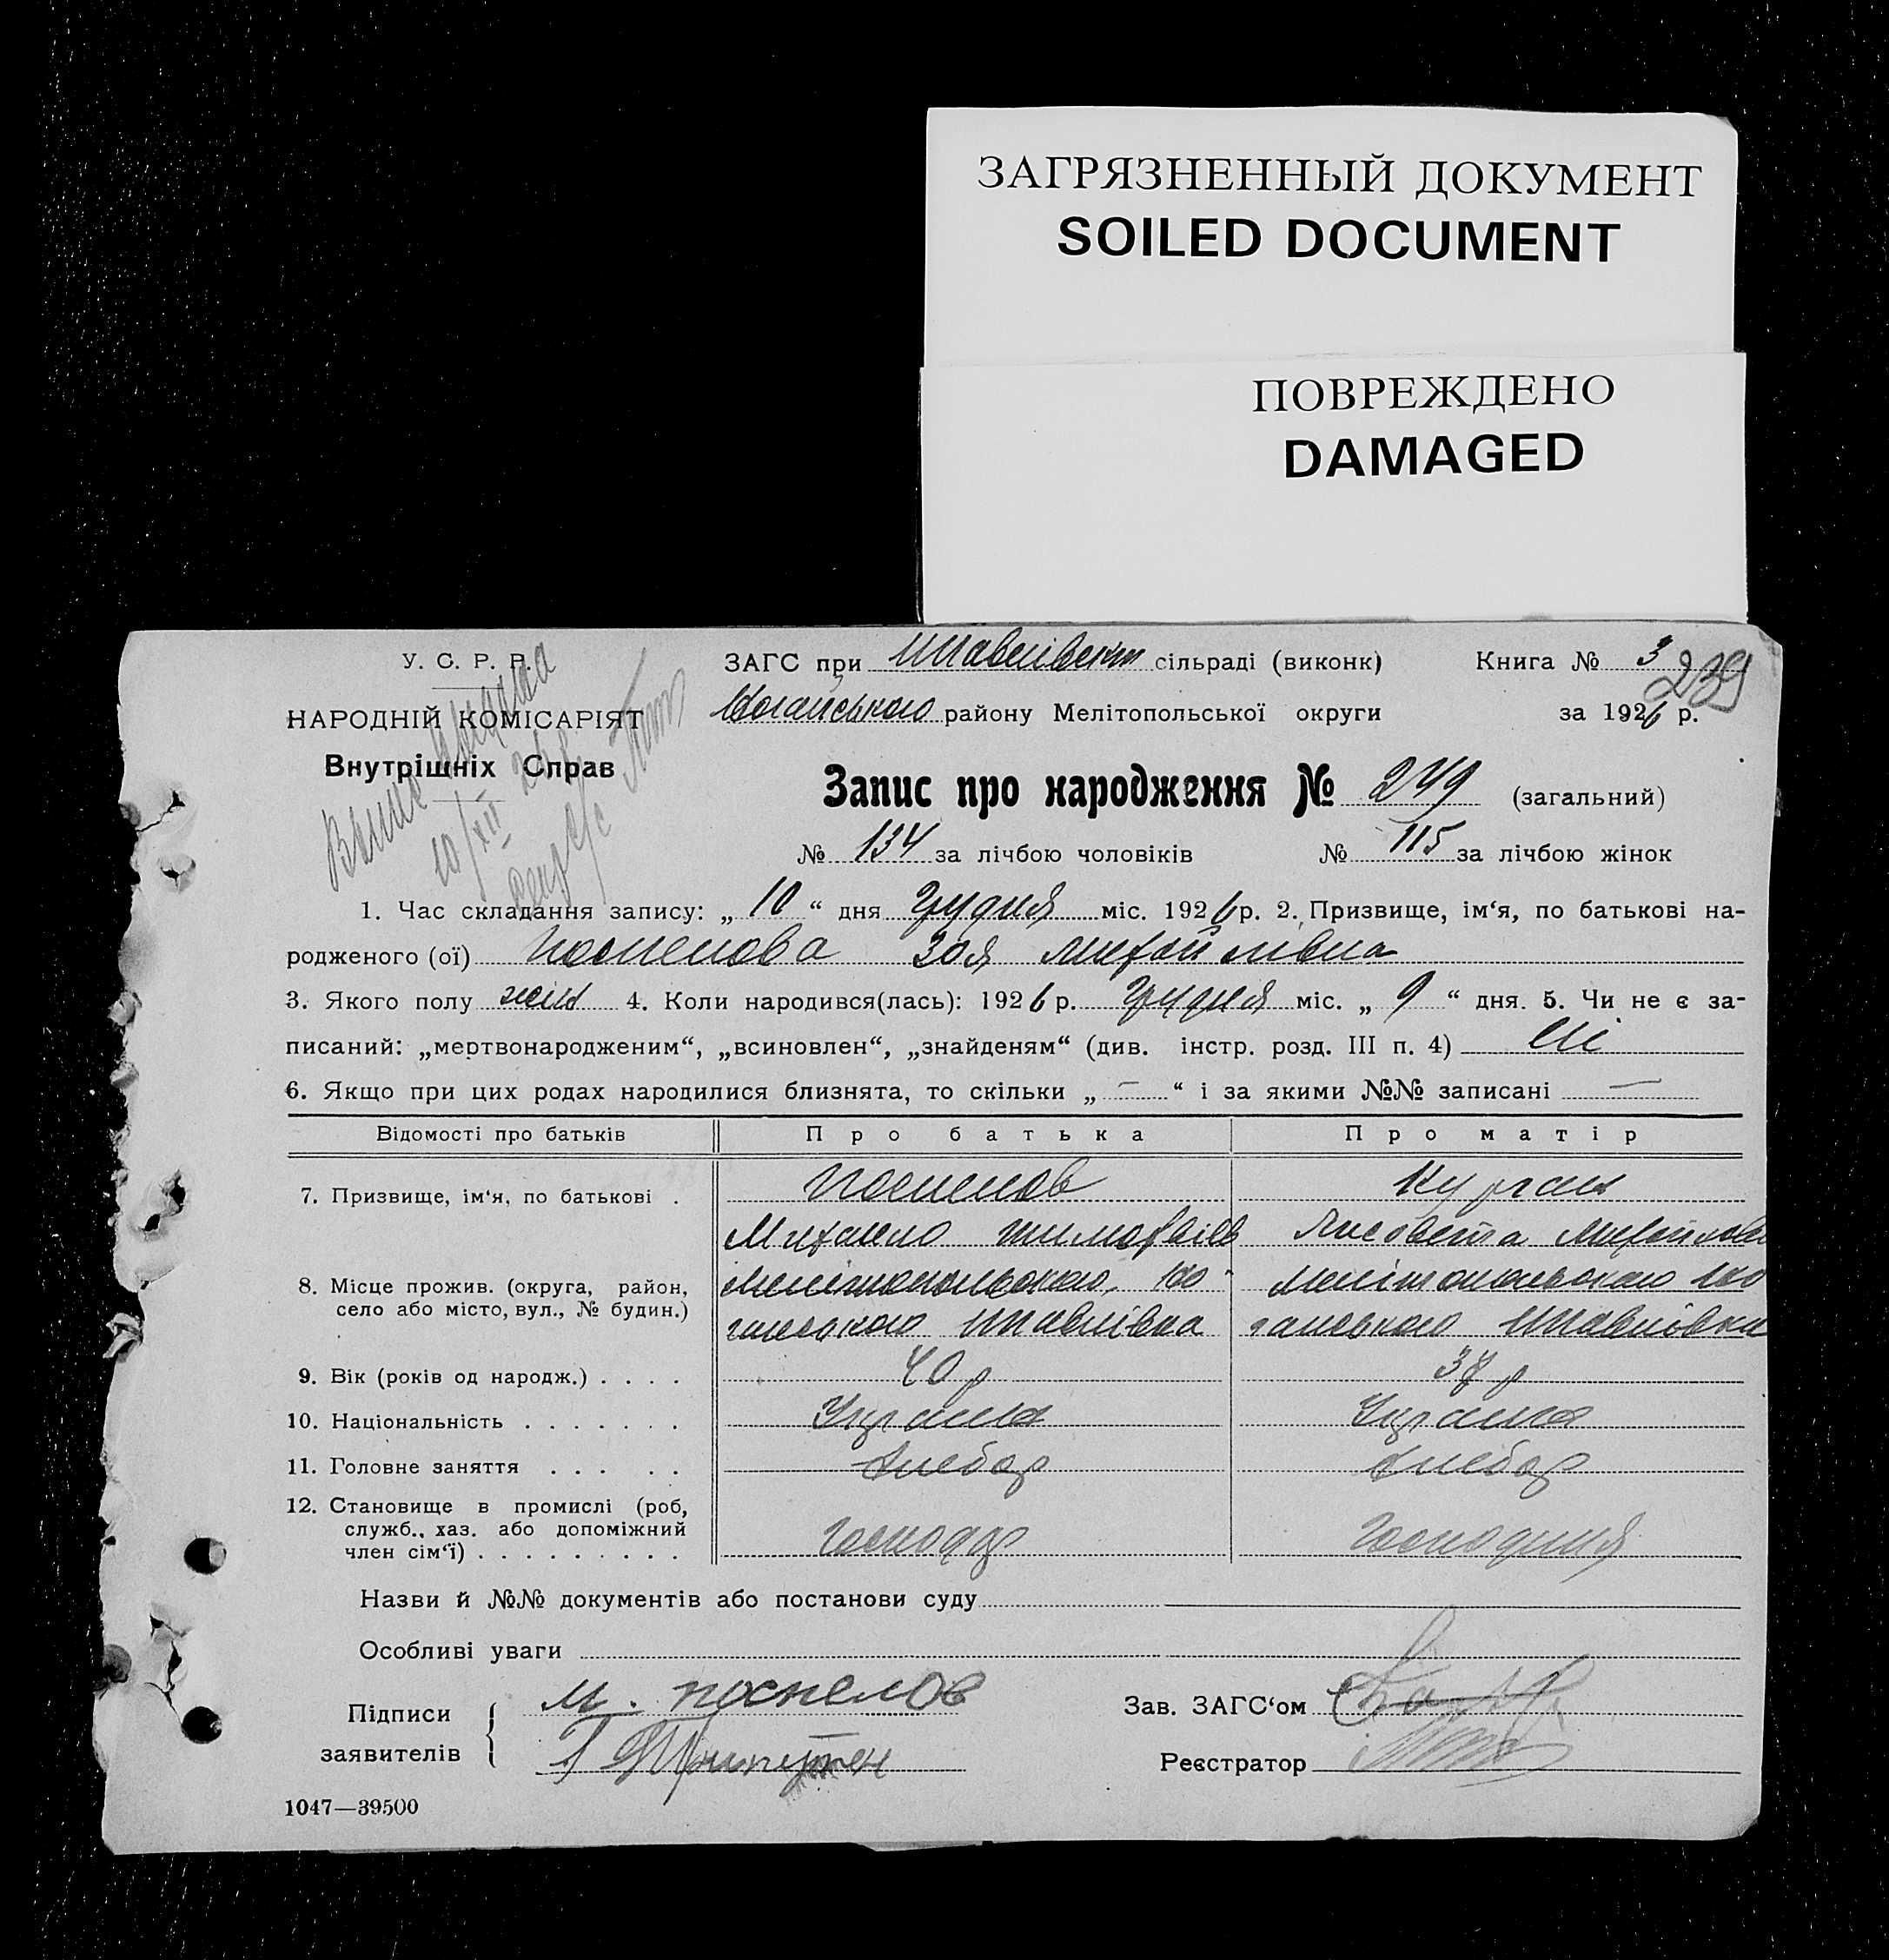 ЗАГРЯЗНЕННЫЙ ДОКУМЕНТ
SOILED DOCUMENT
ПОВРЕЖДЕНО
DAMAGED
У. С. Р. Р.
НАРОДНІЙ КОМІСАРІЯТ
Внутрішніх Справ
10/XII 26
ЗАГС при сільраді (виконк) Книга № 3
239
району Мелітопольської округи за 1926 р.
Запис про народження № 249 (загальний)
№ 134 за лічбою чоловіків № 115 за лічбою жінок
1. Час складання запису: „ 10 “ дня Грудня міс. 1926 р. 2. Призвище, ім‘я, по батькові на-
родженого (ої) Поспелова Зоя Михайлівна
3. Якого полу жін 4. Коли народився(лась): 1926 р. Грудня міс. „ 9 “ дня. 5. Чи не є за-
писаний: „мертвонародженим“, „всиновлен“, „знайденям“ (див. інстр. розд. III п. 4) Ні
6. Якщо при цих родах народилися близнята, то скільки „ — “ і за якими №№ записані —
Відомості про батьків Про батька Про матір
7. Призвище, ім‘я, по батькові . Поспелов Курган
Михайло Тимофієв Лисовета Михайлов
8. Місце прожив. (округа, район, Мелітопольського, Но- Мелітопольського Но
село або місто, вул., № будин.) гайського гайського
9. Вік (років од народж.) . . . . 40 р 37 р
10. Національність . . . . . . . Україна Україна
11. Головне заняття . . . . . Хлебор Хлебор
12. Становище в промислі (роб,
служб., хаз. або допоміжний
член сім‘ї) . . . . . . . . . Господар Господиня
Назви й №№ документів або постанови суду
Особливі уваги
Підписи
заявителів
М. Поспелов
Зав. ЗАГС‘ом
Реєстратор
1047—39500